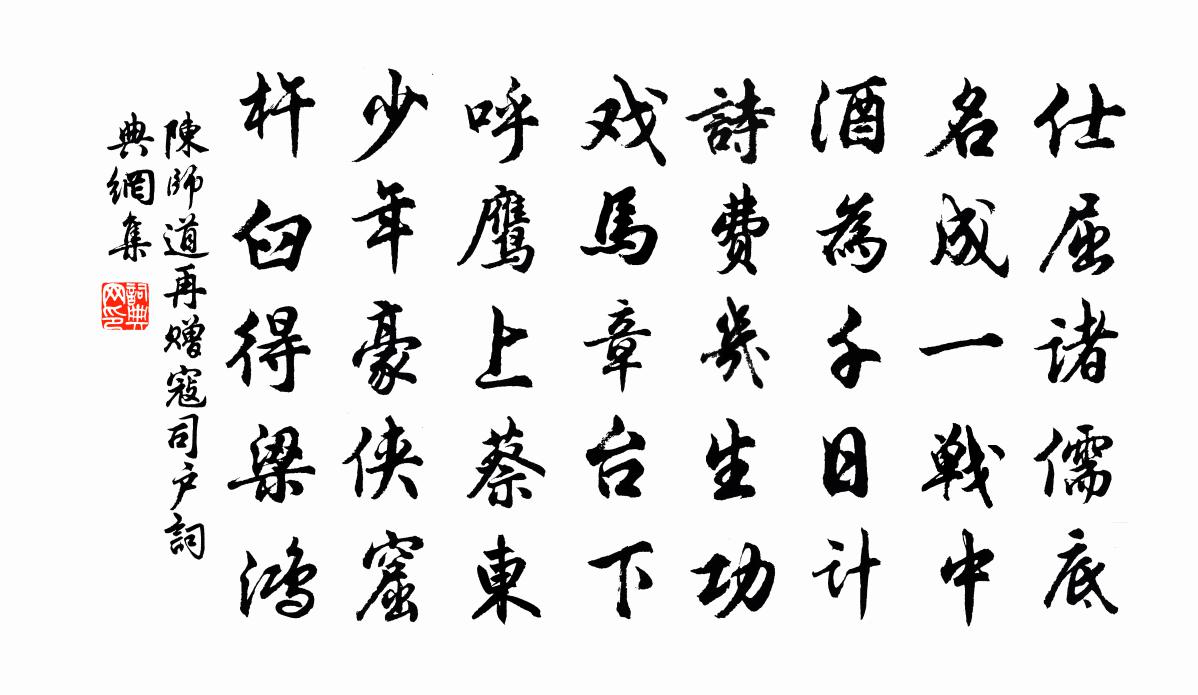 仕屈諸儒底
名成一戦中
酒為千日计
詩费幾生功
戏馬章台下
呼鹰上蔡東
少年豪侠窟
杵臼得梁鸿
陳師道再赠寇司户詞
典網集
詞典
网印